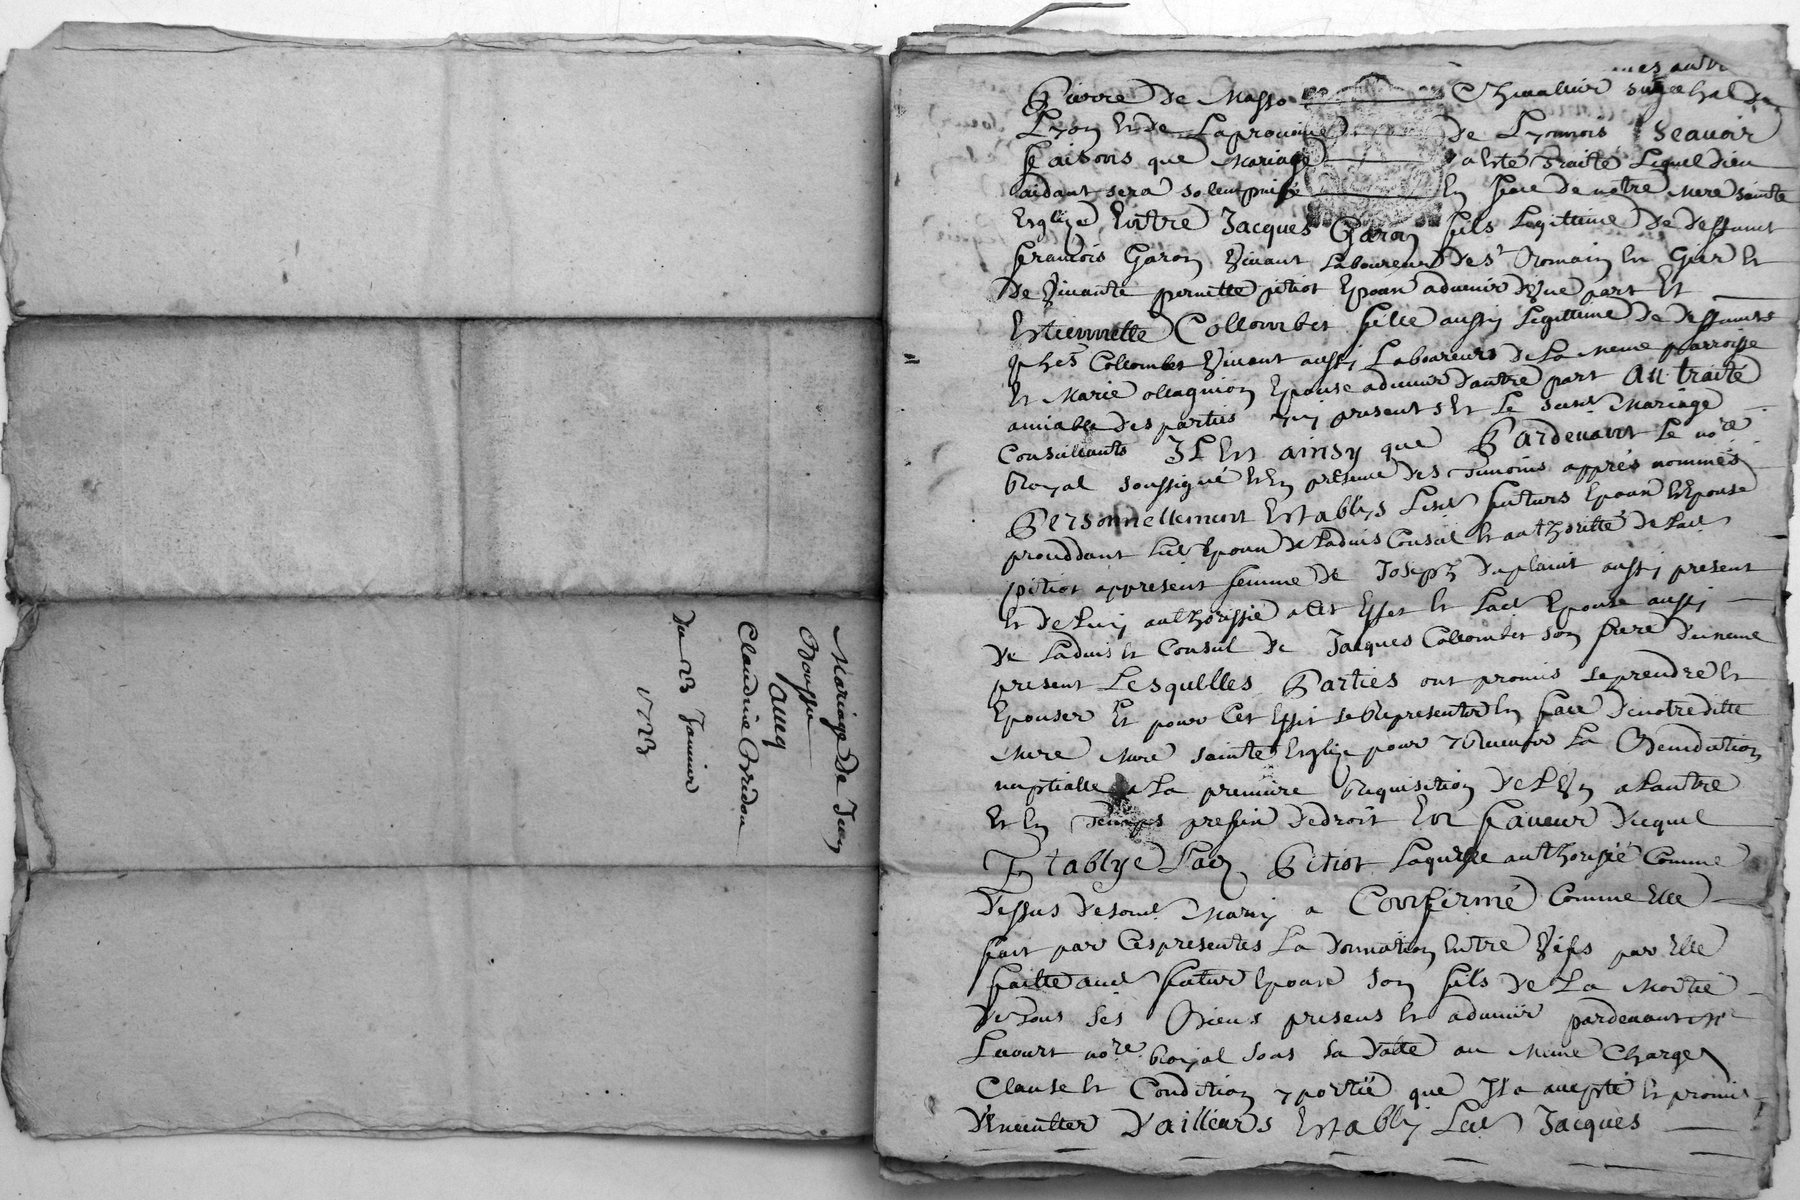 Mariage De Jean
Rousset
avecq
Claudine Bridon
Du 23 Janvier
1723
Pierre De Masso Chevallier Senechal De
Lyon Et De La province De Lyonnois Scavoir
faisons que Mariage a Esté Traité Lequel dieu
aidant sera solempnisé En face de notre Mere sainte
Esglize Entre Jacques Garon fils Legittime De deffunt
francois Garon Vivant Laboureur De St Romain En Gier Et
De Vivante pernette pitiot Epoux advenir d'Une part Et
Estiennette Collombet fille aussy Legittime De deffunts
Collombet Vivant aussy Laboureur De La meme parroisse
Et Marie Epouse advenir d'autre part Au traité
amiable des parties icy presents Et Le susd Mariage
Consultants Il Est ainsy que Pardevant Le nore
Royal soussigné Et En presence Des Temoins apprés nommés
Personnellement Establys Lesd futurs Epoux Et Epouse
proceddant Led Epoux De L'advis Conseil Et authoritté De Lad
pitiot appresent femme De Joseph Duplaint aussy present
Et De Luy authorisée a Cet Effet Et Lad Epouse aussy
De L'advis Et Conseil De Jacques Collombet son frere
present Lesquelles Parties ont promis se prendre Et
Epouser Et pour Cet Effet se Representer En face De notre ditte
Mere Mere sainte Esglize pour y Recevoir La Benediction
nuptialle a La premiere Requisition De L'Un a L'autre
Et En Temps prefix De droit En faveur Duquel
Establye Lad Pitiot Laquelle authorisée Comme
Dessus De sond Mary a Confirmé Comme Elle
fait par Ces presentes La Donnation Entre Vifs par Elle
faitte aud futur Epoux son fils De La Moitié
De Tous ses Biens presens Et advenir pardevant Me
nore Royal sous sa Datte au Meme Charge
Clause Et Condition y portée que Il a accepté Et promis
D'Executter D'ailleurs Estably Led Jacques